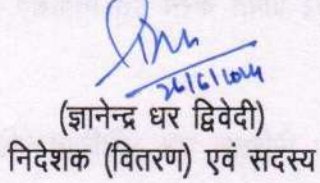 26/6/2024
(ज्ञानेन्द्र धर द्विवेदी)
निदेशक (वितरण) एवं सदस्य